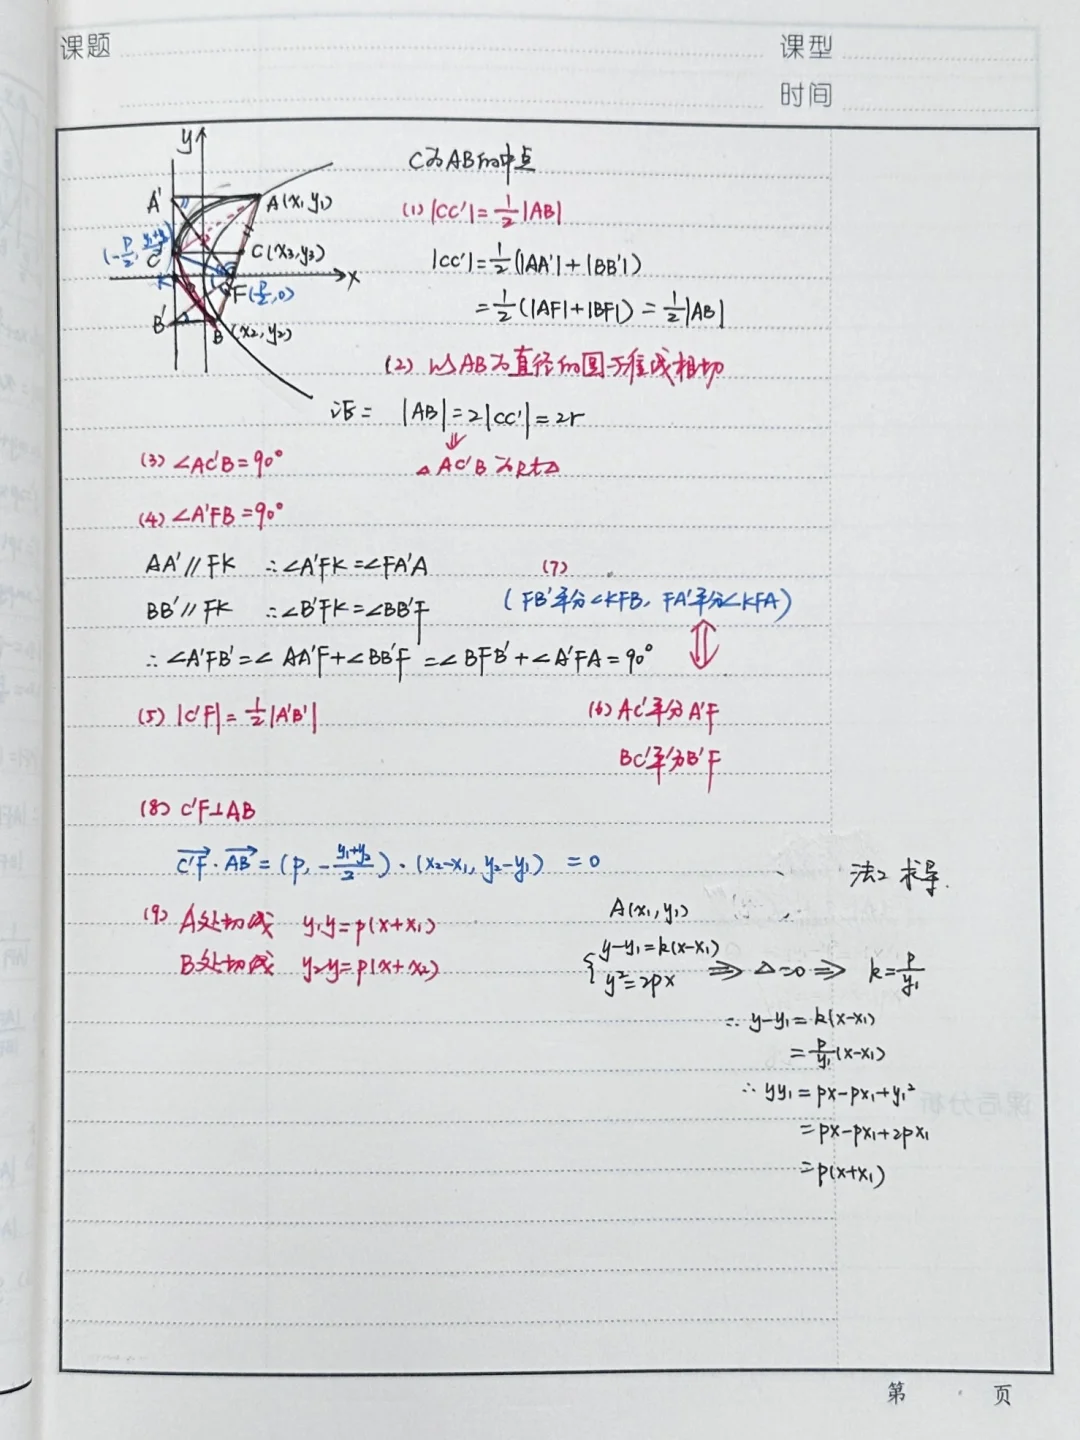 课题
课型
时间
y
A'
A(x₁,y₁)
(-p/2, (y₁+y₂)/2)
C'
C(x₃,y₃)
x
K
F(p/2,0)
B'
B(x₂,y₂)
C为AB的中点
(1) |CC'|=1/2|AB|
|CC'|=1/2(|AA'|+|BB'|)
=1/2(|AF|+|BF|)=1/2|AB|
(2) 以AB为直径的圆于准线相切
证= |AB|=2|CC'|=2r
⇓
(3) ∠AC'B=90°
△AC'B为Rt△
(4) ∠A'FB=90°
AA'//FK ∴∠A'FK=∠FA'A
(7)
BB'//FK ∴∠B'FK=∠BB'F
(FB'平分∠KFB, FA'平分∠KFA)
∴∠A'FB'=∠AA'F+∠BB'F=∠BFB'+∠A'FA=90°
(5) |C'F|=1/2|A'B'|
(6) AC'平分A'F
BC'平分B'F
(8) C'F⊥AB
C'F·AB=(p, -(y₁+y₂)/2)·(x₂-x₁, y₂-y₁) =0
法2 求导.
(9) A处切线 y₁y=p(x+x₁)
B处切线 y₂y=p(x+x₂)
A(x₁,y₁)
{y-y₁=k(x-x₁)
y²=2px ⇒ △=0 ⇒ k=p/y₁
∴ y-y₁=k(x-x₁)
=p/y₁(x-x₁)
∴ yy₁=px-px₁+y₁²
=px-px₁+2px₁
=p(x+x₁)
第 页